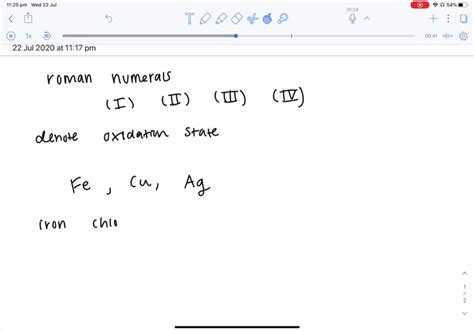 11:25 pm Wed 22 Jul
54%
01:24
1x
00:41
22 Jul 2020 at 11:17 pm
roman numerals
(I) (II) (III) (IV)
denote oxidation state
Fe, Cu, Ag
iron chlo
1
2